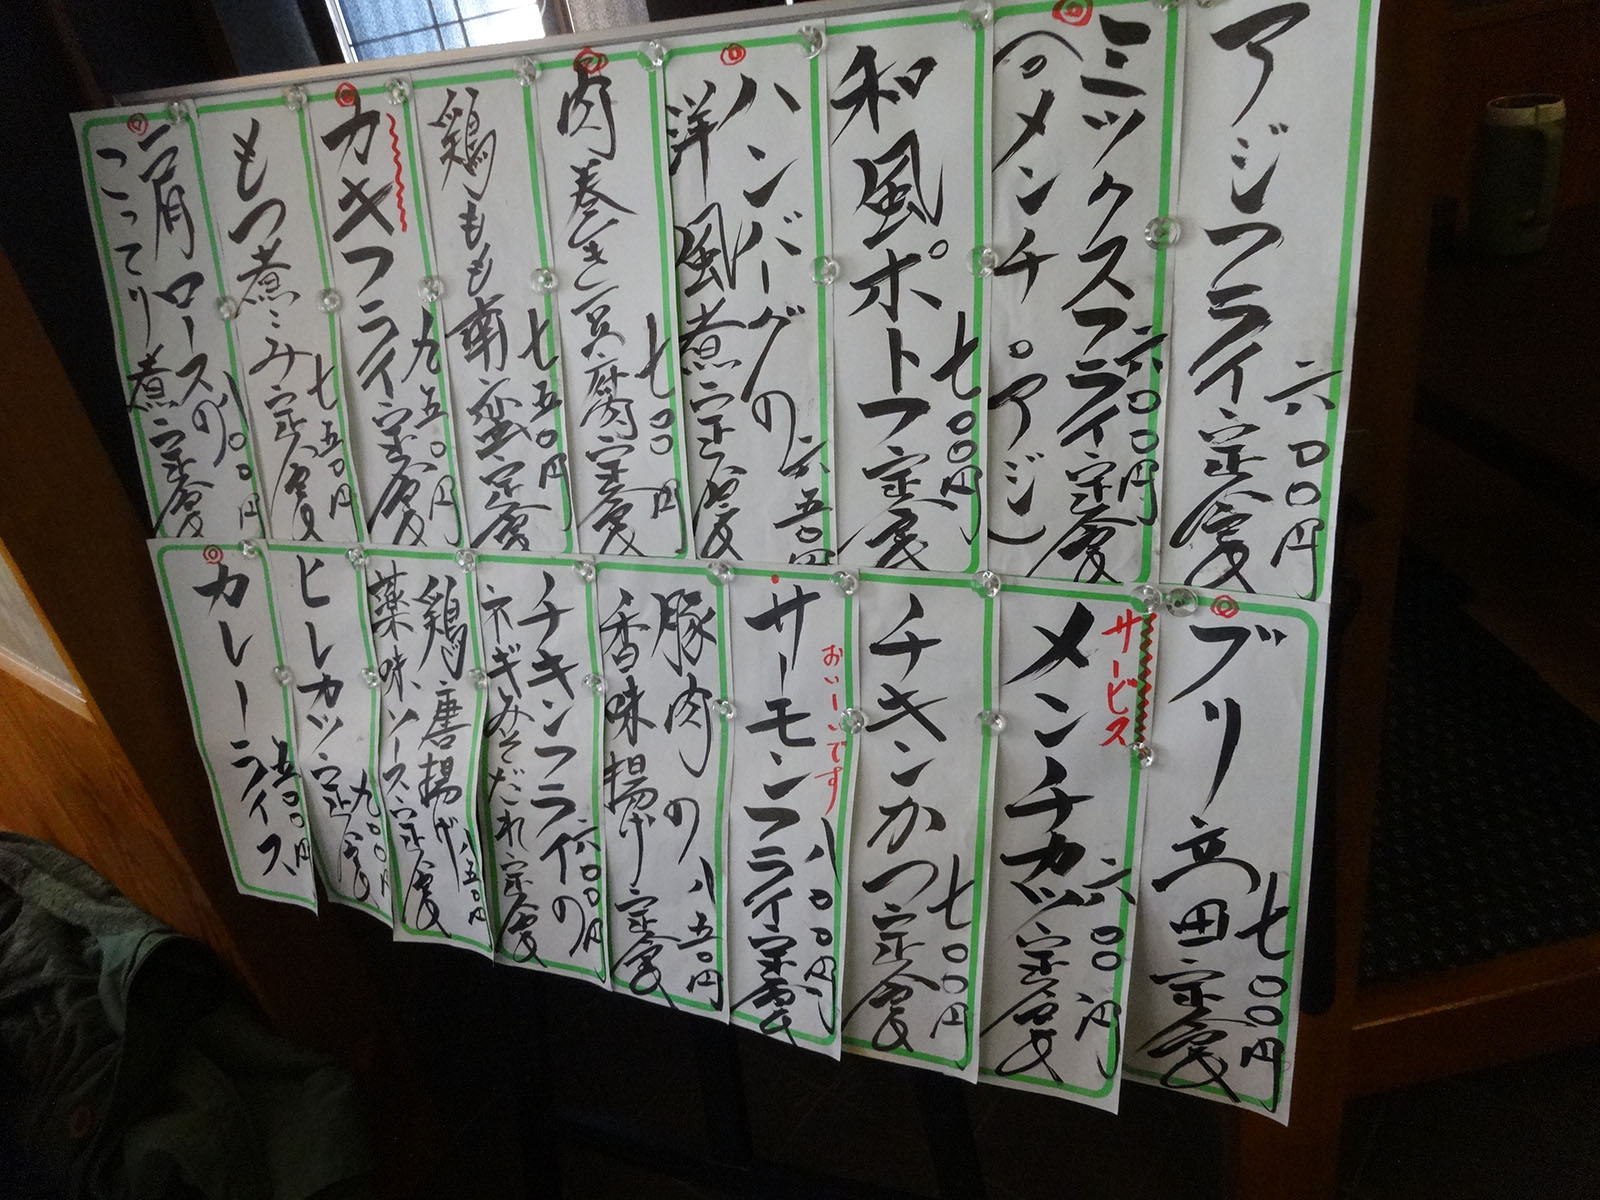 アジフライ定食
六〇〇円
ミックスフライ定食
六〇〇円
(メンチ。アジ)
和風ポトフ定食
七〇〇円
ハンバーグの
洋風煮定食
六五〇円
肉巻き豆腐定食
七〇〇円
鶏もも南蛮定食
七五〇円
カキフライ定食
九五〇円
もつ煮こみ定食
七五〇円
肩ロースの
こってり煮定食
八〇〇円
ブリ立田定食
七〇〇円
サービス
メンチカツ定食
六〇〇円
チキンかつ定食
七〇〇円
おいーいです
サーモンフライ定食
八〇〇円
豚肉の
香味揚げ定食
八五〇円
チキンフライの
ネギみそだれ定食
六〇〇円
鶏唐揚げ
薬味ソース定食
八五〇円
ヒレカツ定食
九〇〇円
カレーライス
五〇〇円